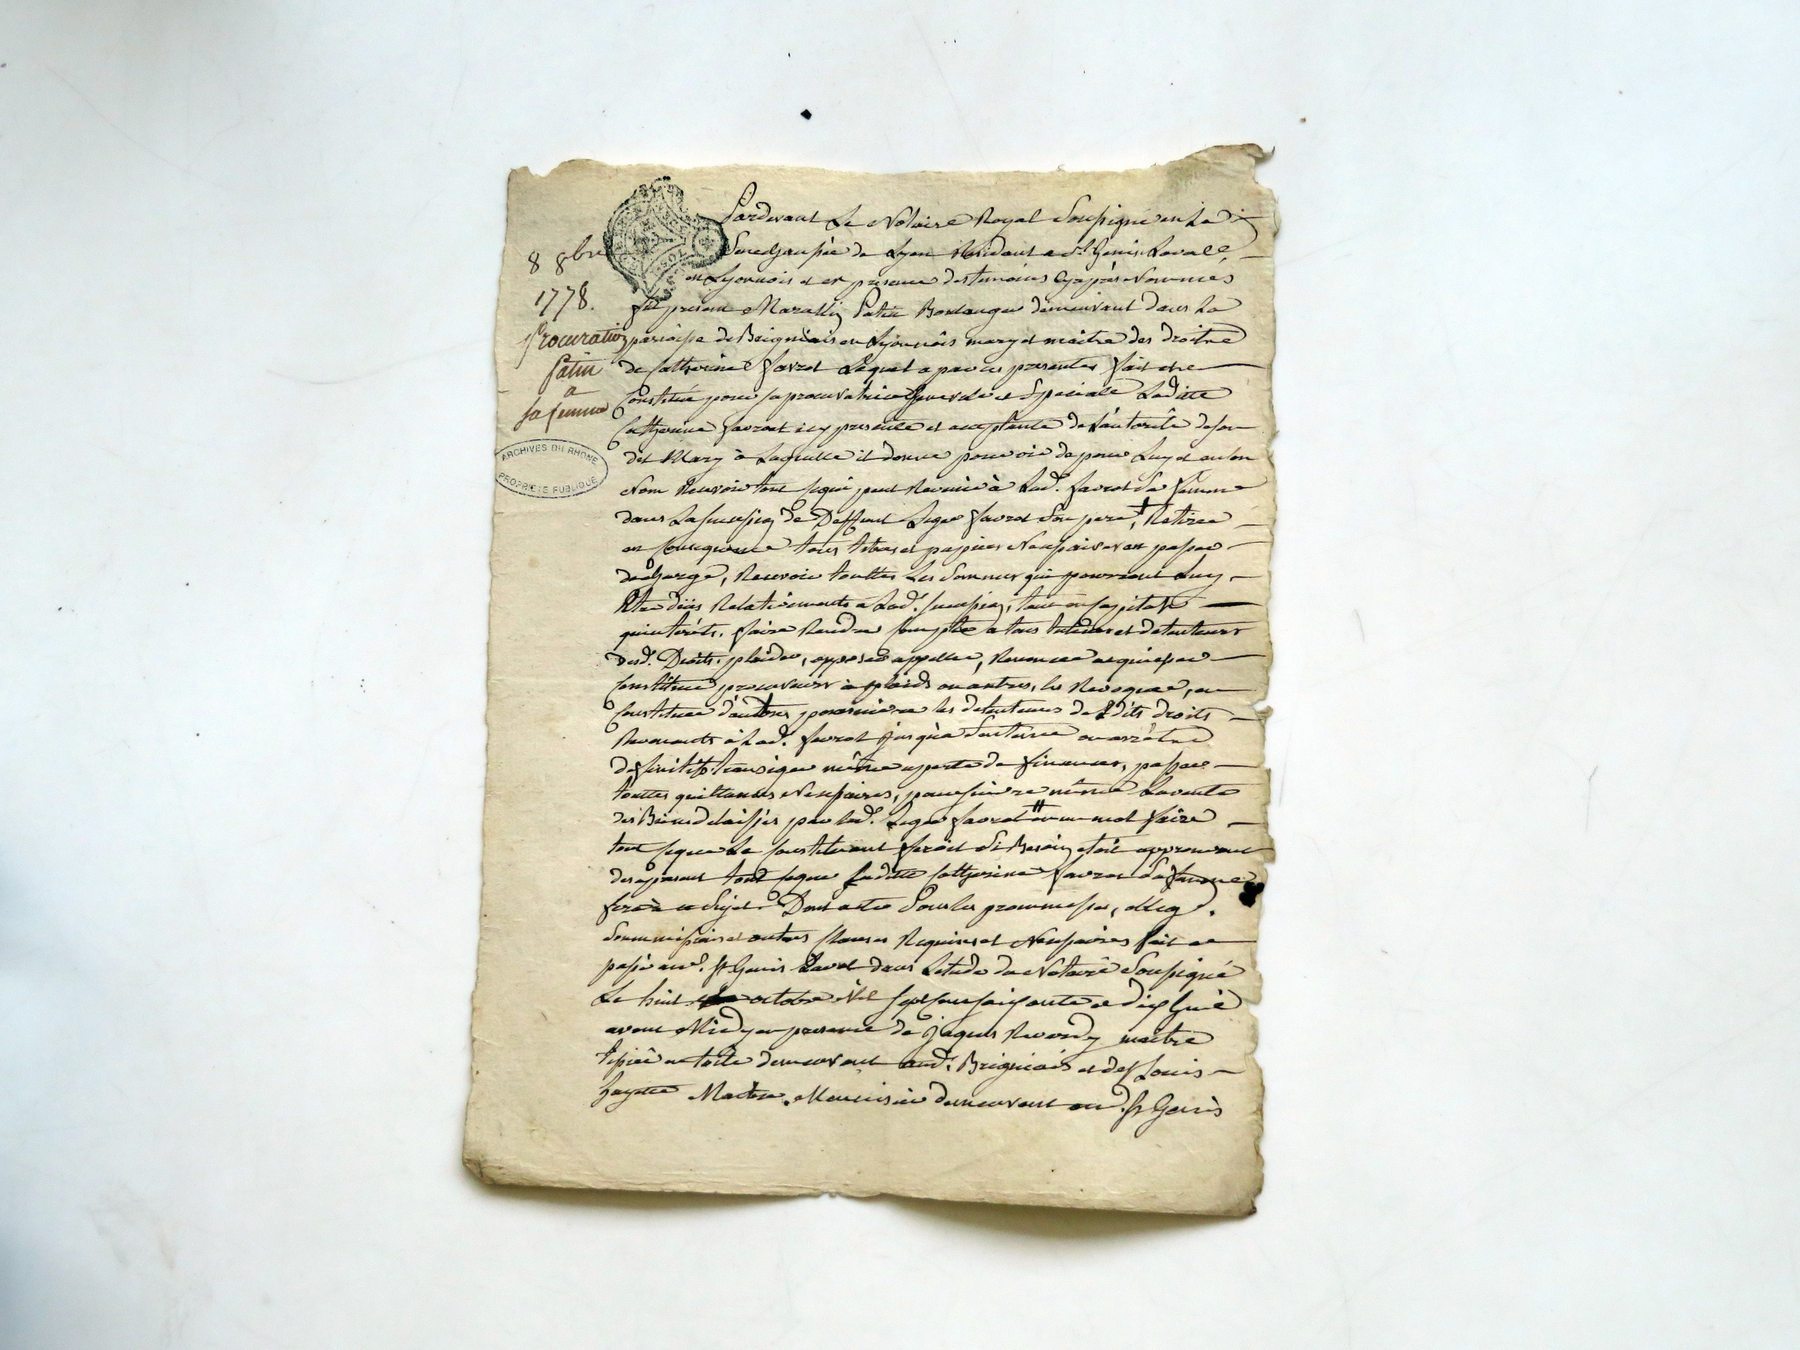 8 8bre
1778.
Procuration
Patin
a
sa femme
ARCHIVES DU RHONE
PROPRIETE PUBLIQUE
Pardevant Le Notaire Royal Soussigné en La
Senechaussée de Lyon Residant a St Genis Laval
en Lyonnois et en presence des temoins cy apres Nommés
fut present Patin Boulanger demeurant dans La
paroisse de Brignais en Lyonnois mary et maitre des droits
de Catherine favrot Lequel a par ces presentes fait et
Constitué pour sa procuratrice generale et Speciale Ladite
Catherine favrot icy presente et acceptante de L'autorité de son
dit Mary a Laquelle il donne pouvoir de pour Luy et en son
Nom Recevoir tout ce qui peut Revenir à Lad. favrot Sa femme
dans La succession de Deffunt favrot Son pere, Retirer
en Consequence tous titres et papiers Necessaires en passer
decharge, Recevoir touttes Les Sommes qui pourront Luy
Etre dües Relativement a Lad. succession, tant en Capitaux
qu'interets, faire Rendre Compte a tous et detenteurs
desd. Droits, plaider, opposer appeller, Renoncer acquiescer
Constituer procureurs à plaids ou autres, les Revoquer, en
Constituer d'autres poursuivre les detenteurs desdits droits
Revenants à Lad. favrot jusqu'a Sentence ou arrêt
definitifs transiger même a perte de finances, passer
touttes quittances Necessaires, poursuivre même La vente
des Biens delaissés par led. favrot en un mot faire
tout ce que Le Constituant feroit Si Besoin etoit approuvant
des a present tout ce que Ladite Catherine favrot Sa femme
fera a ce Sujet. Dont acte Sous les promesses, oblig.
Soummissions et autres Clauses Requises et Necessaires fait et
passé aud. St Genis Laval dans L'etude du Notaire Soussigné
Le huit octobre Mil sept cent soixante et dix huit
avant Midy en presence de Jaques maitre
demeurant aud. Brignais et de Louis
Maitre Menuisier demeurant aud. St Genis